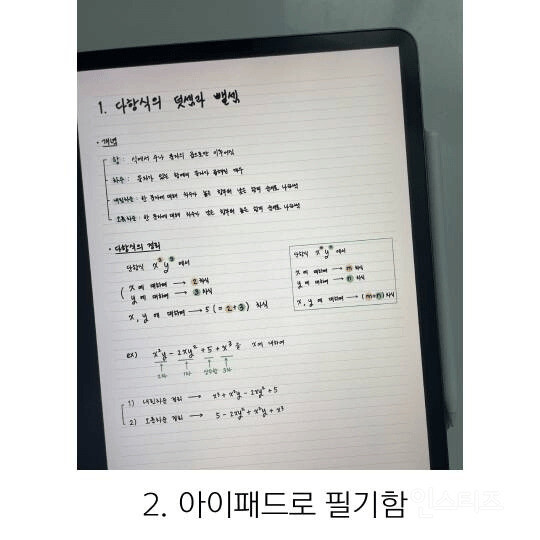 1. 다항식의 덧셈과 뺄셈
· 개념
항 : 식에서 수나 문자의 곱으로만 이루어진
차수 : 문자가 있는 항에서 문자가 곱해진 개수
내림차순 : 한 문자에 대해 차수가 높은 항부터 낮은 항의 순서로 나타냄
오름차순 : 한 문자에 대해 차수가 낮은 항부터 높은 항의 순서로 나타냄
· 다항식의 정리
단항식 x²y³ 에서
x 에 대하여 → 2 차식
y 에 대하여 → 3 차식
x, y 에 대하여 → 5 (= 2+3) 차식
단항식 xᵐyⁿ 에서
x 에 대하여 → m 차식
y 에 대하여 → n 차식
x, y 에 대하여 → (m+n) 차식
ex) x²y - 2xy² + 5 + x³ 을 x에 대하여
2차 1차 상수항 3차
1) 내림차순 정리 → x³ + x²y - 2xy² + 5
2) 오름차순 정리 → 5 - 2xy² + x²y + x³
2. 아이패드로 필기함
인스티즈